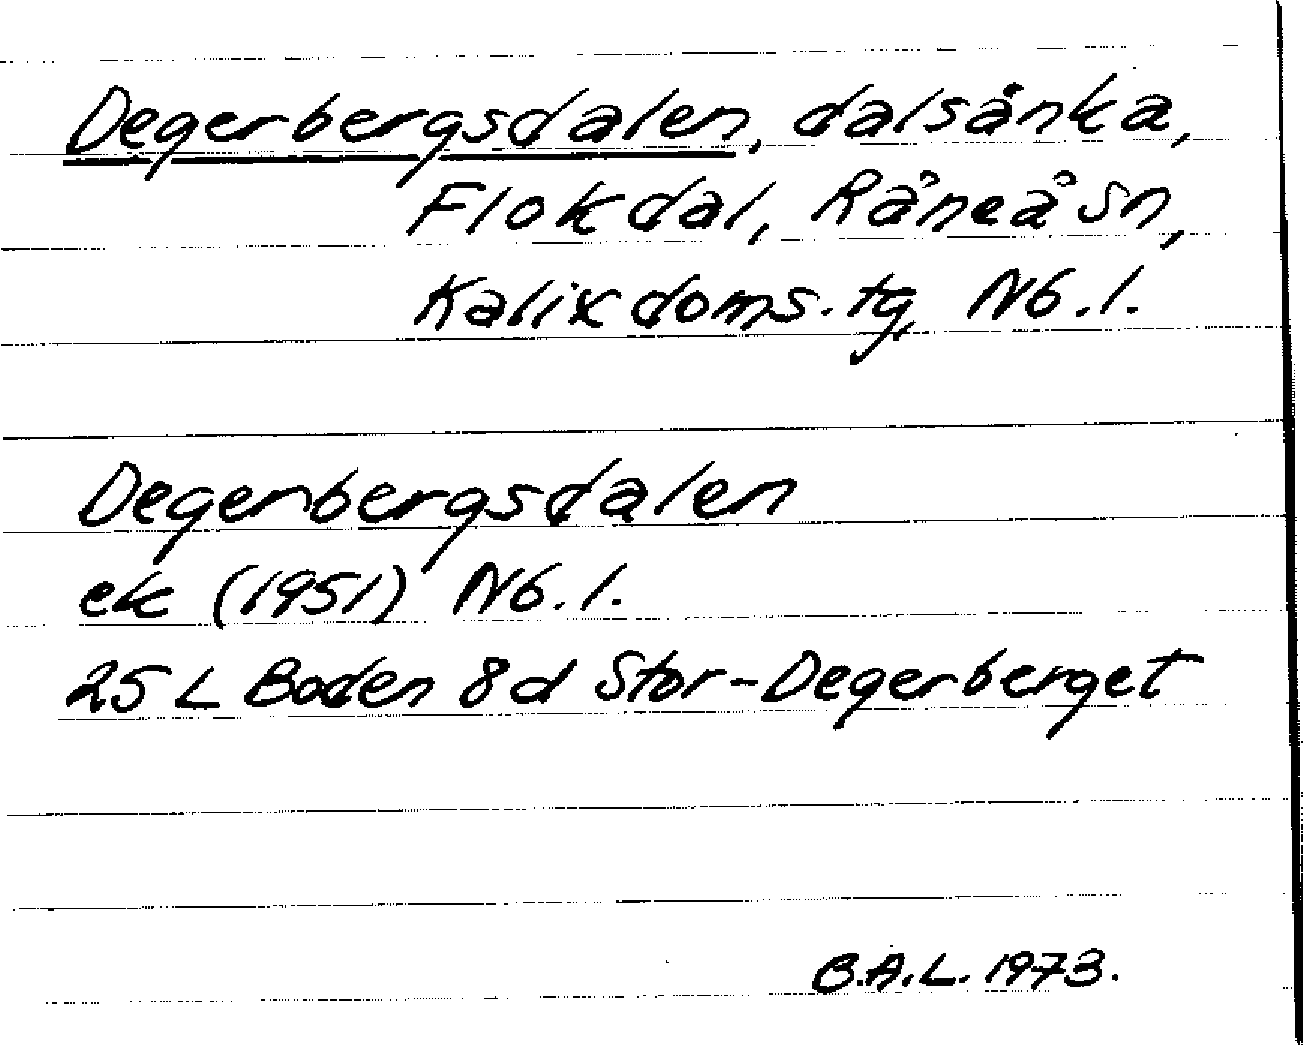 Degerbergsdalen, dalsänka,
Flokdal, Råneå sn,
Kalix doms. tg, Nb. l.
Degerbergsdalen
ek (1951) Nb. l.
25 L Boden 8d Stor-Degerberget
B.A.L. 1973.